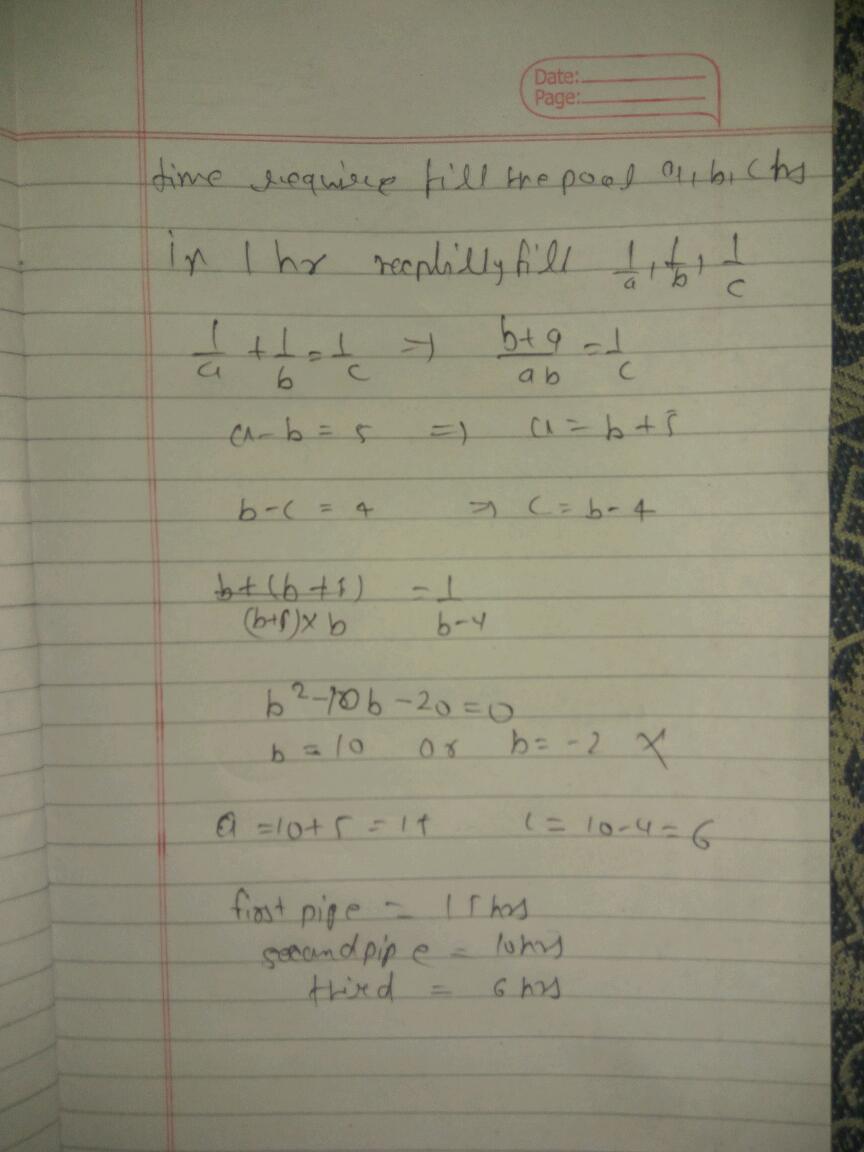 Date:
Page:
time require fill the pool a, b, c hs
in 1 hr fill 1/a, 1/b, 1/c
1/a + 1/b = 1/c => b+a/ab = 1/c
a-b = 5 => a = b+5
b-c = 4 => c = b-4
b+(b+5)/(b+5)×b = 1/b-4
b²-b-20=0
b = 10 or b = -2 X
a = 10+5 = 15 c = 10-4 = 6
first pipe = 15 hrs
secand pipe = 10 hrs
third = 6 hrs